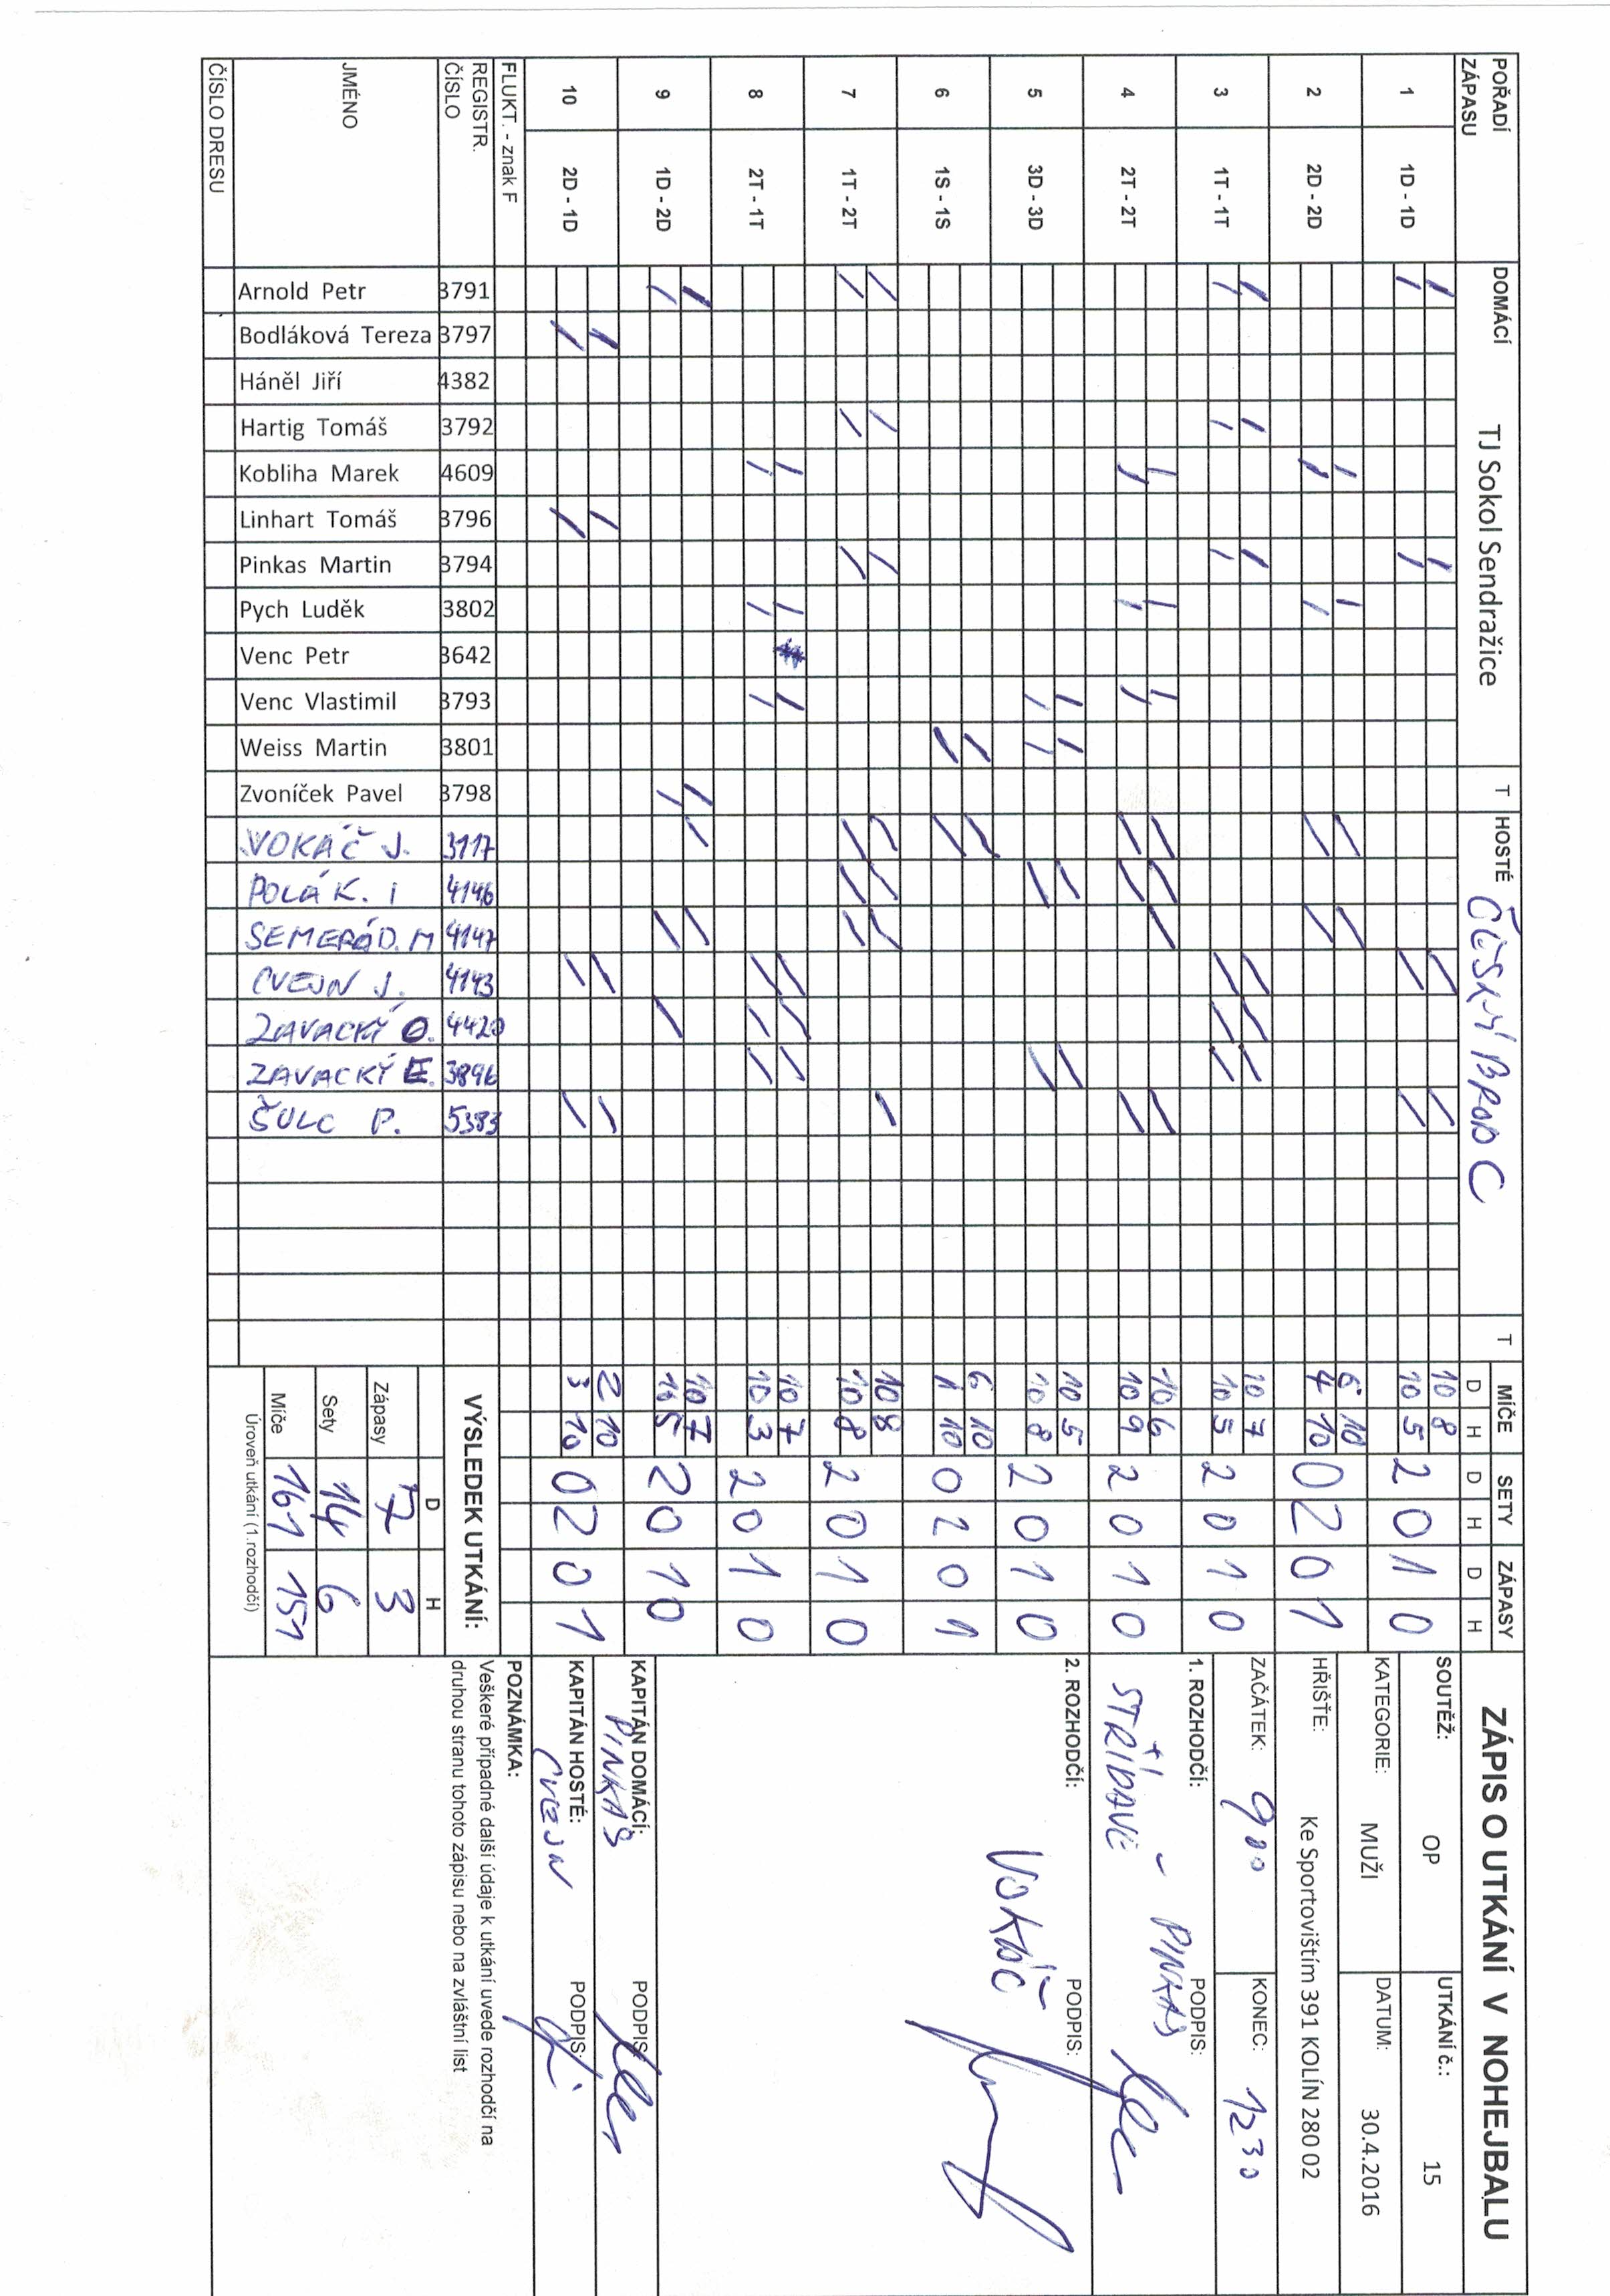 ZÁPIS O UTKÁNÍ V NOHEJBALU
SOUTĚŽ: OP UTKÁNÍ č.: 15
KATEGORIE: MUŽI DATUM: 30.4.2016
HŘIŠTĚ: Ke Sportovištím 391 KOLÍN 280 02
ZAČÁTEK: 9 00 KONEC: 12 30
1. ROZHODČÍ: PODPIS:
STŘÍDAVĚ - PINKAS
2. ROZHODČÍ: PODPIS:
VOKÁČ
KAPITÁN DOMÁCÍ: PODPIS:
PINKAS
KAPITÁN HOSTÉ: PODPIS:
CVEJN
POZNÁMKA:
Veškeré případné další údaje k utkání uvede rozhodčí na
druhou stranu tohoto zápisu nebo na zvláštní list
POŘADÍ ZÁPASU DOMÁCÍ TJ Sokol Sendražice T HOSTÉ ČESKÝ BROD C T MÍČE SETY ZÁPASY
D H D H D H
1 1D - 1D 10 8 2 0 1 0
10 5
2 2D - 2D 6 10 0 2 0 1
4 10
3 1T - 1T 10 7 2 0 1 0
10 5
4 2T - 2T 10 6 2 0 1 0
10 9
5 3D - 3D 10 5 2 0 1 0
10 8
6 1S - 1S 6 10 0 2 0 1
1 10
7 1T - 2T 10 8 2 0 1 0
10 8
8 2T - 1T 10 7 2 0 1 0
10 3
9 1D - 2D 10 7 2 0 1 0
10 5
10 2D - 1D 2 10 0 2 0 1
3 10
FLUKT. - znak F
REGISTR. ČÍSLO
JMÉNO
ČÍSLO DRESU
Arnold Petr 3791
Bodláková Tereza 3797
Háněl Jiří 4382
Hartig Tomáš 3792
Kobliha Marek 4609
Linhart Tomáš 3796
Pinkas Martin 3794
Pych Luděk 3802
Venc Petr 3642
Venc Vlastimil 3793
Weiss Martin 3801
Zvoníček Pavel 3798
VOKÁČ J. 3117
POLÁK. I 4146
SEMERÁD. M 4147
CVEJN J. 4143
ZAVACKÝ O. 4420
ZAVACKÝ E. 3896
ŠULC P. 5383
VÝSLEDEK UTKÁNÍ:
D H
Zápasy 7 3
Sety 14 6
Míče 161 151
Úroveň utkání (1.rozhodčí)